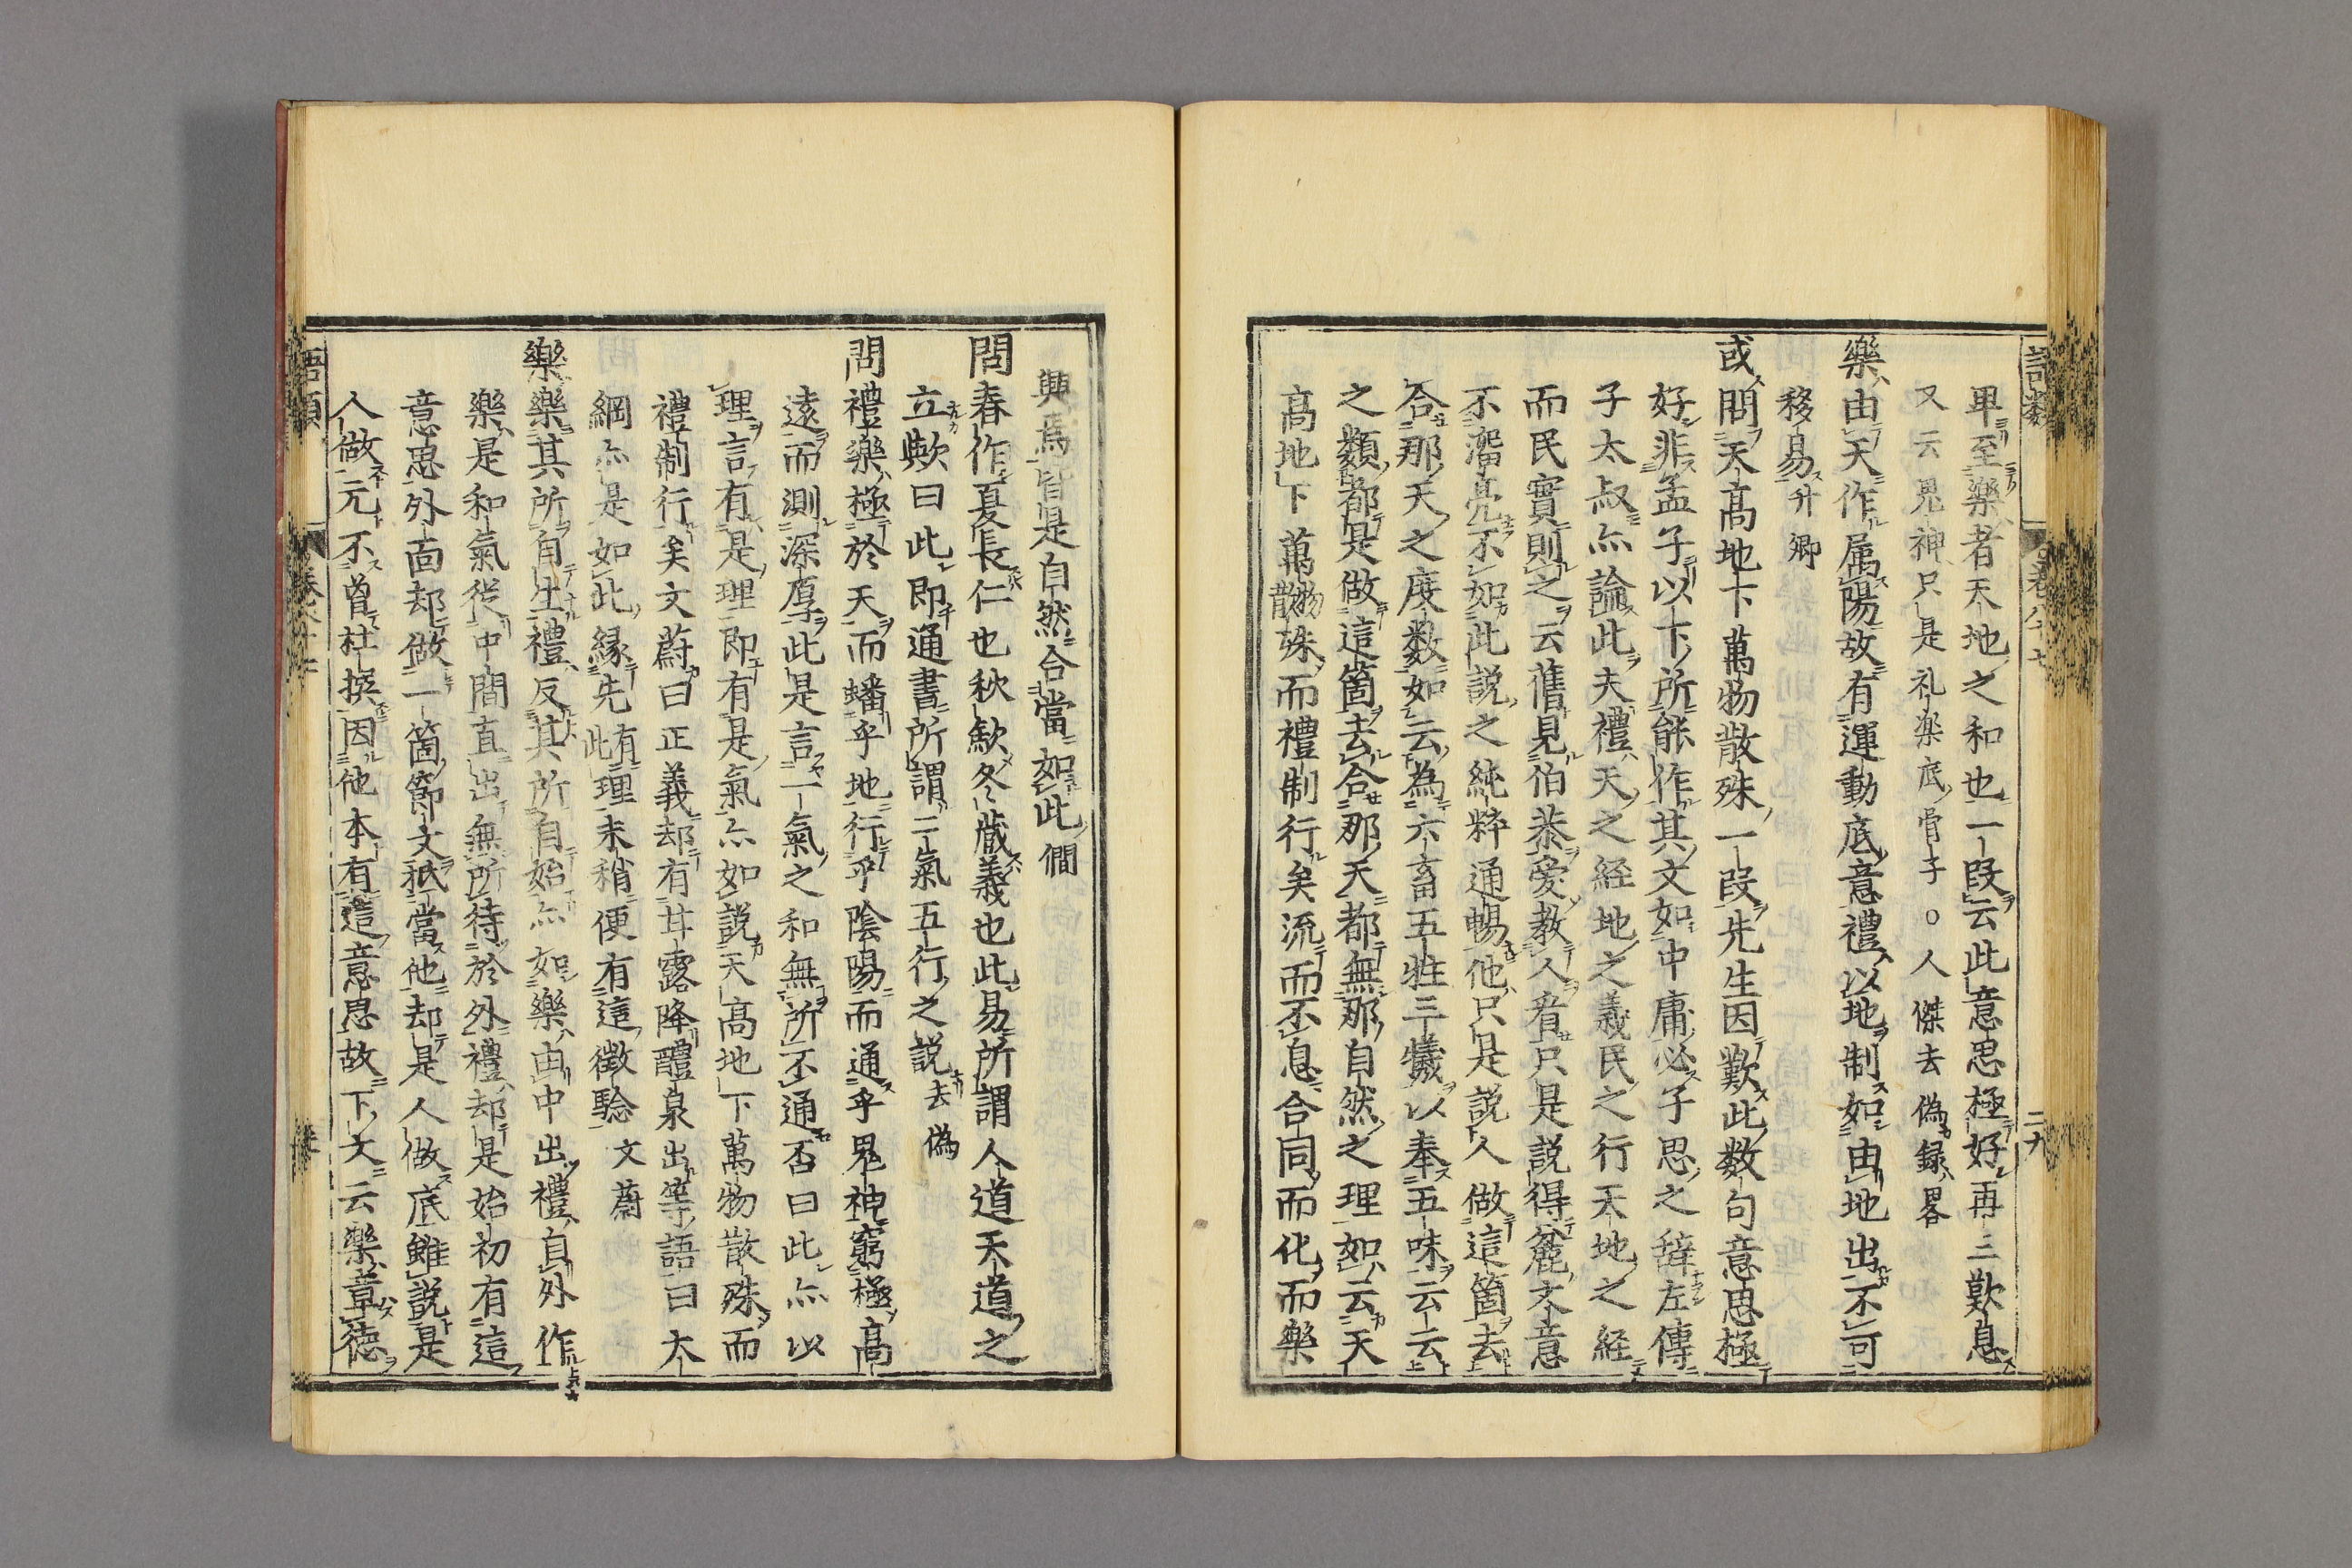 語類 卷八十七 二九
畢至樂者天地之和也一段云此意思極好再三歎息
又云鬼神只是礼楽底骨子○人傑去偽録畧
樂由天作属陽故有運動底意禮以地制如由地出不可
移易升卿
或問天高地下萬物散殊一段先生因歎此数句意思極
好非孟子以下所能作其文如中庸必子思之辞左傳
子太叔亦論此夫禮天之経地之義民之行天地之経
而民實則之云舊見伯恭愛教人看只是説得麄文意
不溜亮不如此説之純粹通暢他只是説人做這箇去
合那天之度数如云為六畜五牲三犧以奉五味云云
之類都是做這箇去合那天都無那自然之理如云天
高地下萬物散殊而禮制行矣流而不息合同而化而樂
興焉皆是自然合當如此僩
問春作夏長仁也秋歛冬蔵義也此易所謂人道天道之
立歟曰此即通書所謂二氣五行之説去偽
問禮樂極於天而蟠乎地行乎陰陽而通乎鬼神窮極高
遠而測深厚此是言一氣之和無所不通否曰此亦以
理言有是理即有是氣亦如説天高地下萬物散殊而
禮制行矣文蔚曰正義却有甘露降醴泉出等語曰大
綱亦是如此縁先有此理末稍便有這徴驗文蔚
樂樂其所自生禮反其所自始亦如樂由中出禮自外作
樂是和氣從中間直出無所待於外禮却是始初有這
意思外面却做一箇節文祇當他却是人做底雖説是
人做元不曽杜撰因他本有這意思故下文云樂章徳
語類